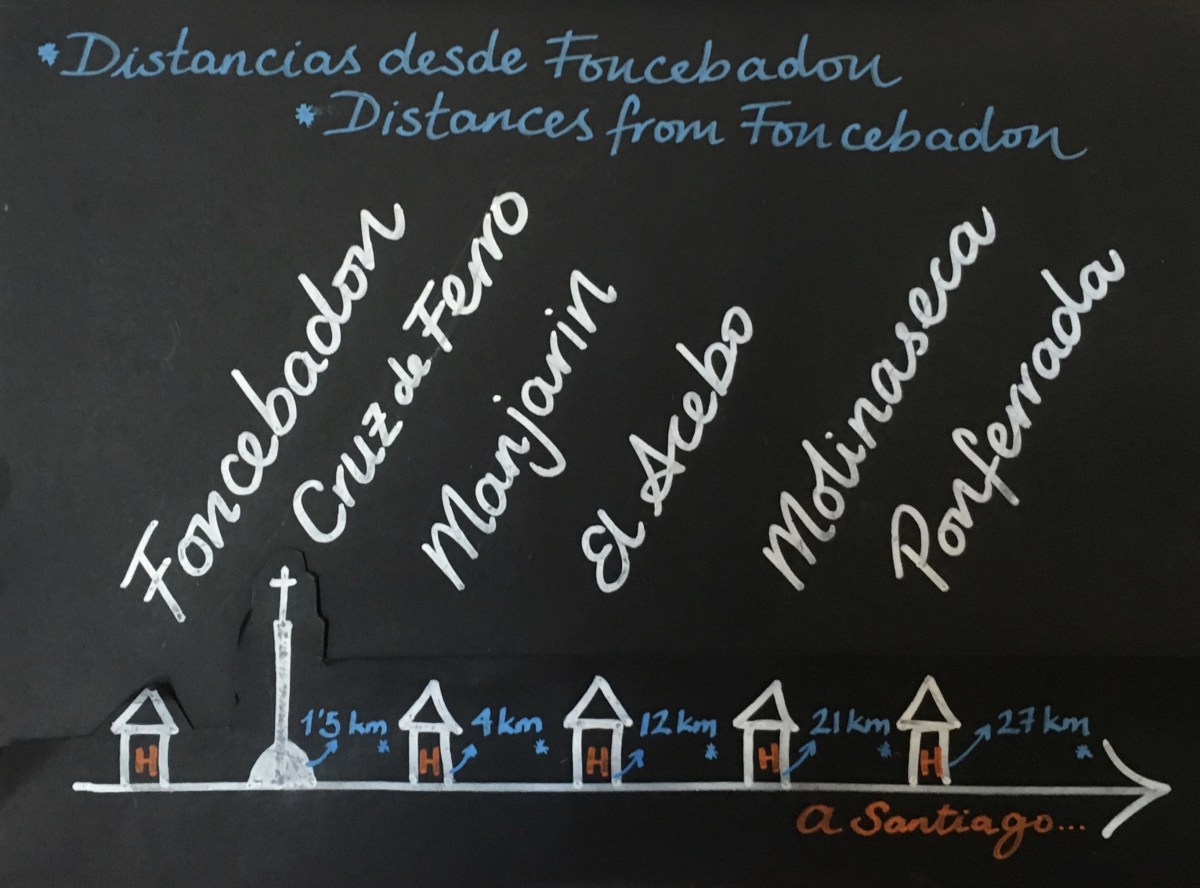 *Distancias desde Foncebadon
*Distances from Foncebadon
Foncebadon
Cruz de Ferro
Manjarin
El Acebo
Molinaseca
Ponferrada
H
1'5 km *
H
4 km *
H
12 km *
H
21 km *
H
27 km *
a Santiago...